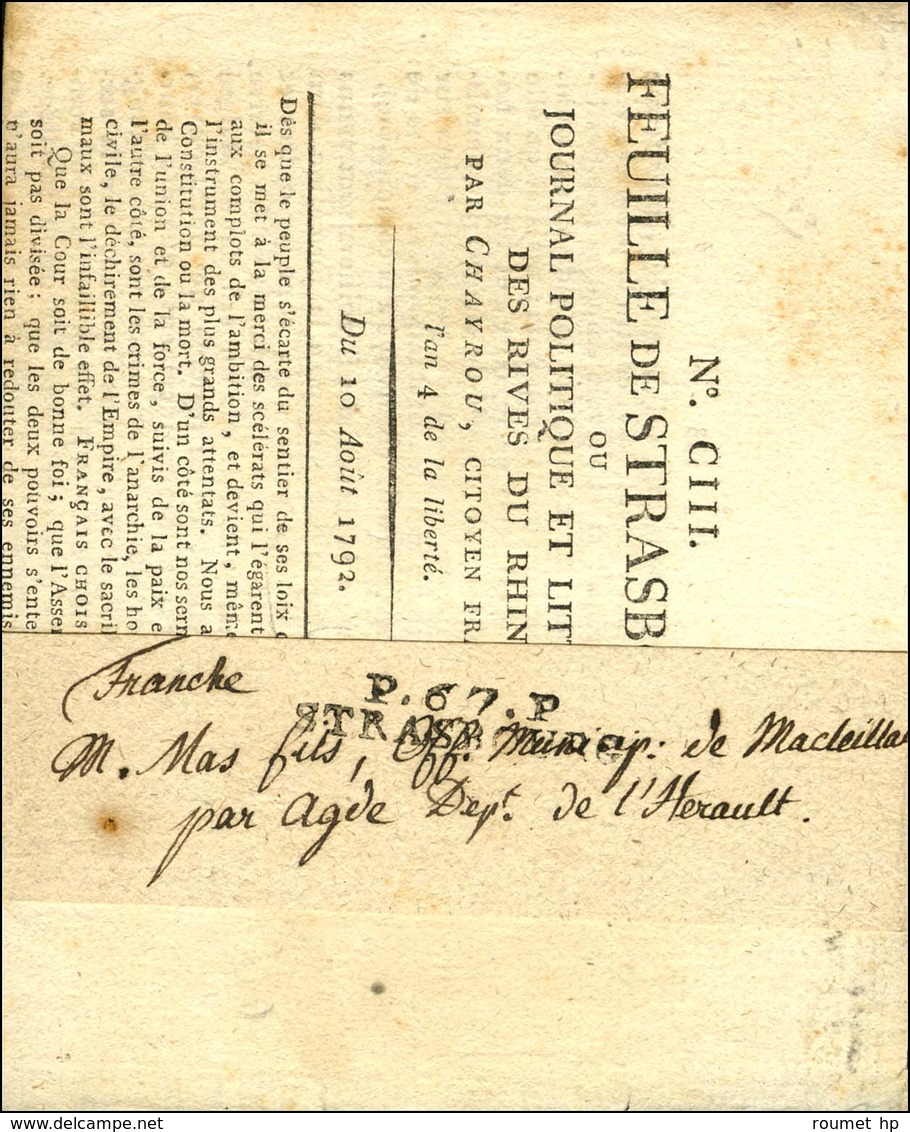 N°. CIII.
FEUILLE DE STRASB
OU
JOURNAL POLITIQUE ET LIT
DES RIVES DU RHIN
PAR CHAYROU, CITOYEN FRA
l'an 4 de la liberté.
Du 10 Août 1792.
Dès que le peuple s'écarte du sentier de ses loix
il se met à la merci des scélérats qui l'égarent
aux complots de l'ambition, et devient, même
l'instrument des plus grands attentats. Nous a
Constitution ou la mort. D'un côté sont nos serm
de l'union et de la force, suivis de la paix e
l'autre côté, sont les crimes de l'anarchie, les ho
civile, le déchirement de l'Empire, avec le sacri
maux sont l'infaillible effet. FRANÇAIS CHOIS
Que la Cour soit de bonne foi; que l'Assem
soit pas divisée; que les deux pouvoirs s'ente
n'aura jamais rien à redouter de ses ennemis
Franche
P. 67. P
STRASBOURG
M. Mas fils, Off. Municip. de Macteilla
par Agde Dept. de l'Herault.
roumet hp